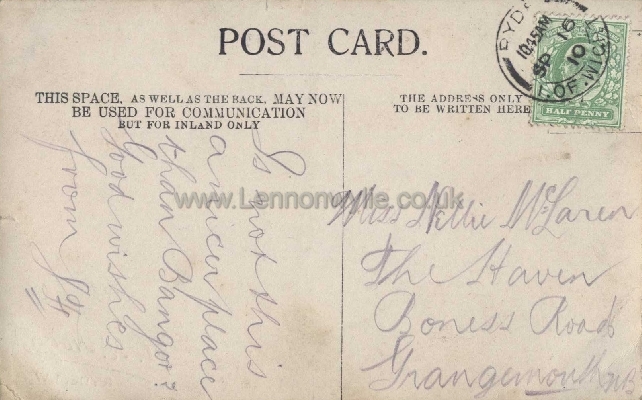 POST CARD.
THIS SPACE, AS WELL AS THE BACK, MAY NOW
BE USED FOR COMMUNICATION
BUT FOR INLAND ONLY
THE ADDRESS ONLY
TO BE WRITTEN HERE
RYDE
10.45AM
SP 15
10
I.OF.WIGHT
HALF PENNY
Is not this
a nicer place
than Bangor?
Good wishes.
from
Miss Nellie McLaren
The Haven
Boness Road
Grangemouth NB
www.Lennonwylie.co.uk